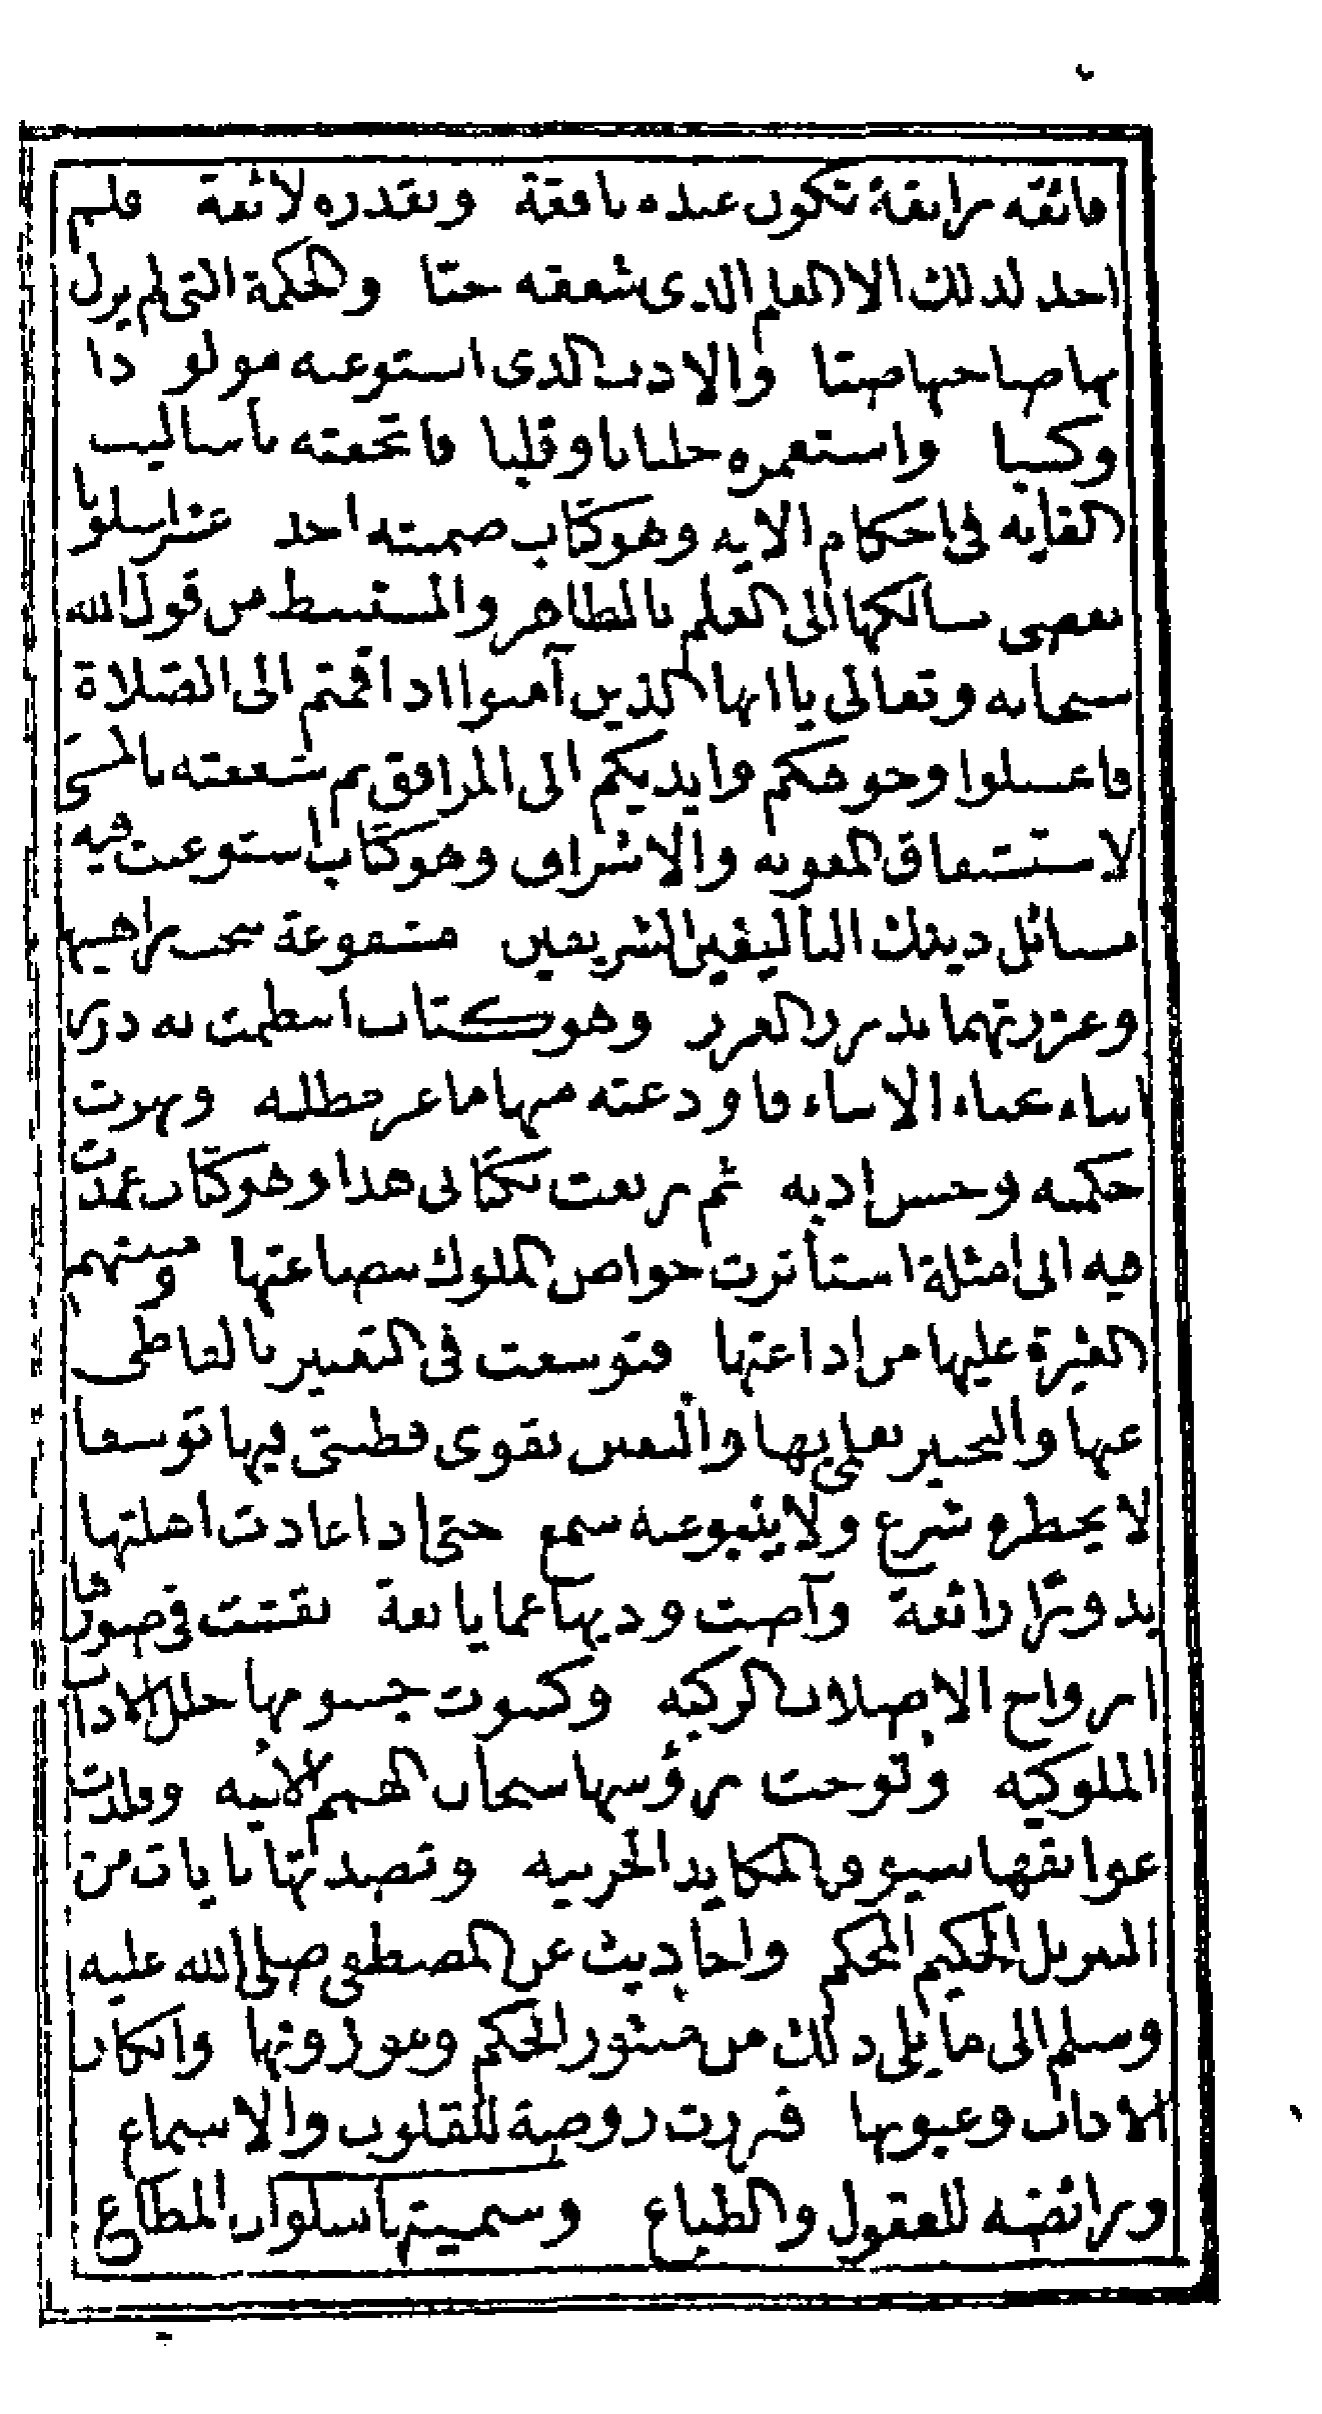 فائقه رائقة تكون عنده نافقة وبقدره لائقة فلم
اجد لذلك الا العلم الذى شغفته حبا والحكمة التى لم يزل
بها صاحبها صبا والادب الذى استوعبه مولودا
وكسبا واستعمره جلبابا وقلبا فاتحفته باساليب
الغايه فى احكام الايه وهو كتاب ضمنته احد عشر اسلوبا
يفضى سالكها الى العلم بالظاهر والمستنبط من قول الله
سبحانه وتعالى يا ايها الذين آمنوا اذا قمتم الى الصلاة
فاغسلوا وجوهكم وايديكم الى المرافق ثم شفعته بالمسنى
لاستشفاق المعونه والاشراف وهو كتاب استوعبت فيه
مسائل ذينك التأليفين الشريفين مشفوعة بحجب براهينها
وعززتهما بدرر الغرر وهو كتاب اسطمت به درى
انباء نجباء الابناء فاودعته منها ما عز مطلبه وبهرت
حكمه وحسن ادبه ثم ربعت بكتابى هذا وهو كتاب عمدت
فيه الى امثلة استأثرت خواص الملوك بصناعتها ومنعهم
الغيرة عليها من اذاعتها فتوسعت فى التعبير بالفاظى
عنها والتحبير بمعانيها والنفس بقوى فطنتى فيها توسعا
لا يحظره شرع ولا ينبو عنه سمع حتى اذا عادت اهلتها
بدورا رائعة وآضت وديها عما يانعة نفثت فى صورها
ارواح الاصلاب الزكيه وكسوت جسومها حلل الاداب
الملوكيه وتوجت رؤسها بتيجان الهمم الابيه وقلدت
عواتقها سيوف المكايد الحربيه وتصدتها بايات من
التنزيل الحكيم المحكم واحاديث عن المصطفى صلى الله عليه
وسلم الى ما يلى ذلك من منثور الحكم وموزونها وابكار
الاداب وعيونها فبرزت روضة للقلوب والاسماع
ورائضه للعقول والطباع وسميتها سلوان المطاع